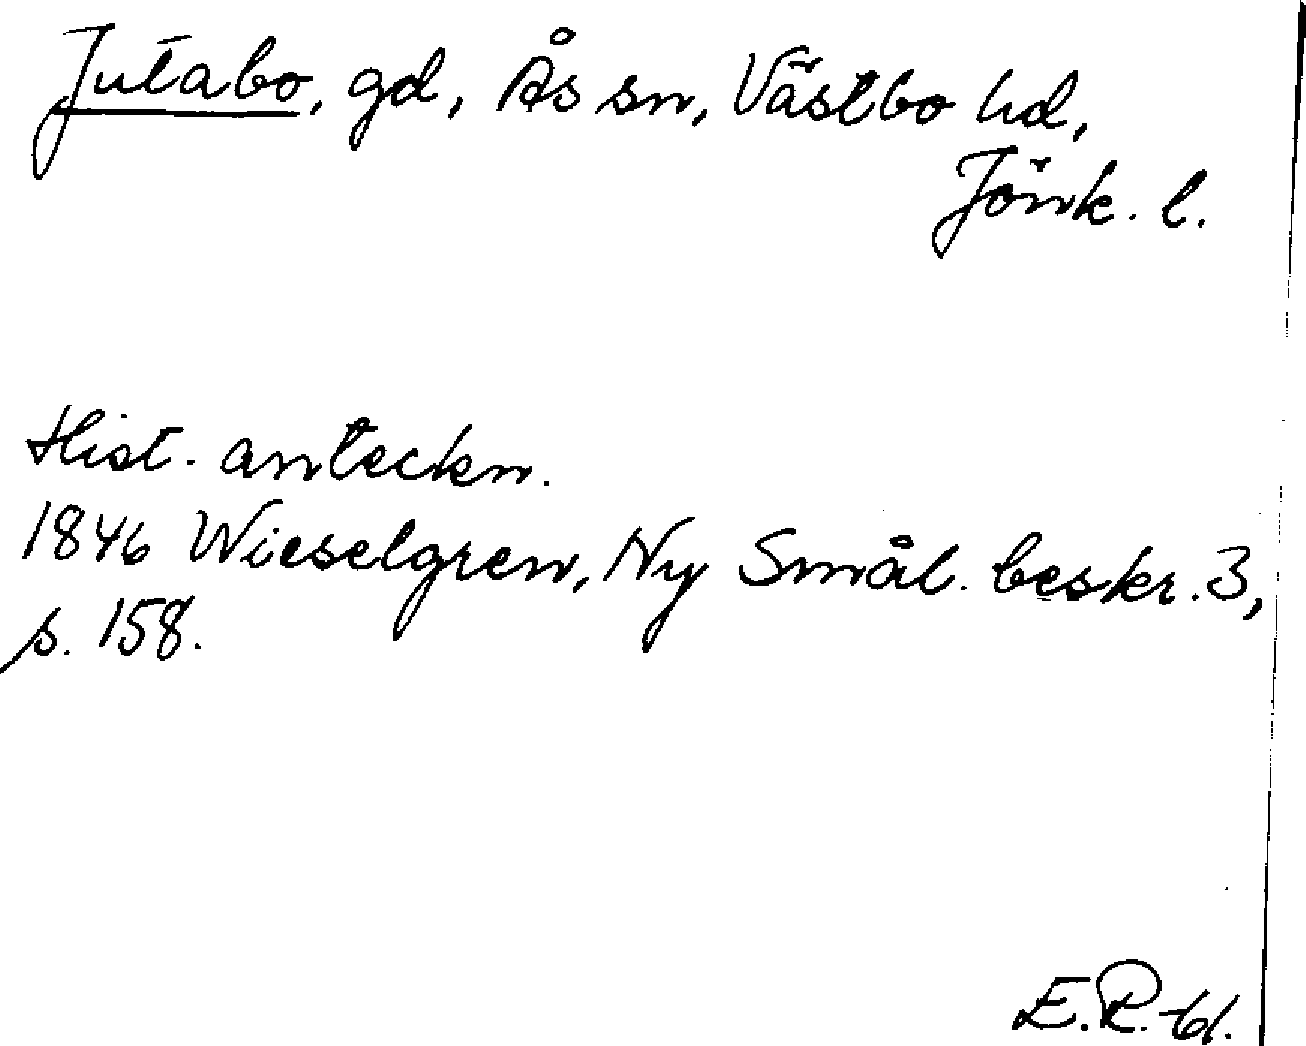 Jutabo, gd, Ås sn, Västbo hd,
Jönk. l.
Hist. anteckn.
1846 Wieselgren, Ny Smål. beskr. 3,
s. 158.
E.R.-61.